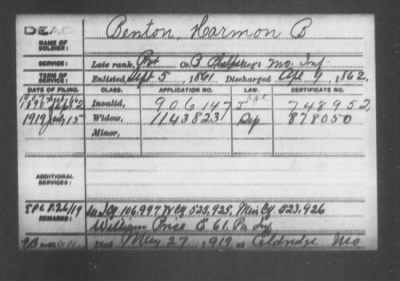 DEAD
Benton, Harmon B
NAME OF SOLDIER:
SERVICE: Late rank, Pvt Co. B Phelps Reg't Mo. Inf.
TERM OF SERVICE: Enlisted Sept 5, 1861 Discharged Apl 9, 1862.
DATE OF FILING. CLASS. APPLICATION NO. LAW. CERTIFICATE NO.
Invalid, 906147 748952
1919 July 15 Widow, 1143823 878050
Minor,
ADDITIONAL SERVICES:
REMARKS: 106,997 W Cf. 525,925. Min Cf. 523,926
William Price E 61. Pa Inf
Died May 27, 1919 at Eldredge Mo.